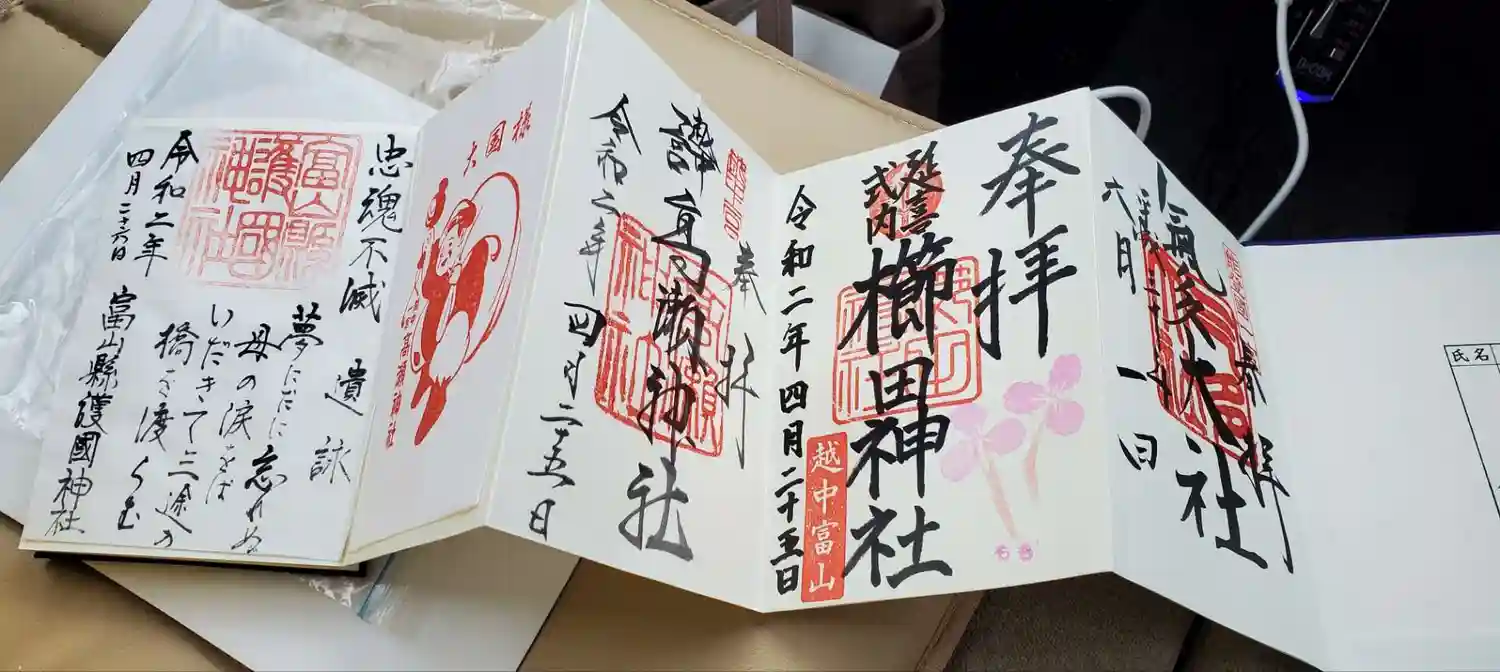 氏名
奉拝
氣多大社
六月一日
奉拝
延喜
式内
櫛田神社
越中富山
令和二年四月二十五日
奉拝
瀬神社
令和二年四月二十五日
大国様
高瀬神社
忠魂不滅
遺詠
夢にだに忘れぬ
母の涙をば
いだきて三途の
橋を渡らむ
富山縣護國神社
富山縣護國神社
令和二年
四月二十六日